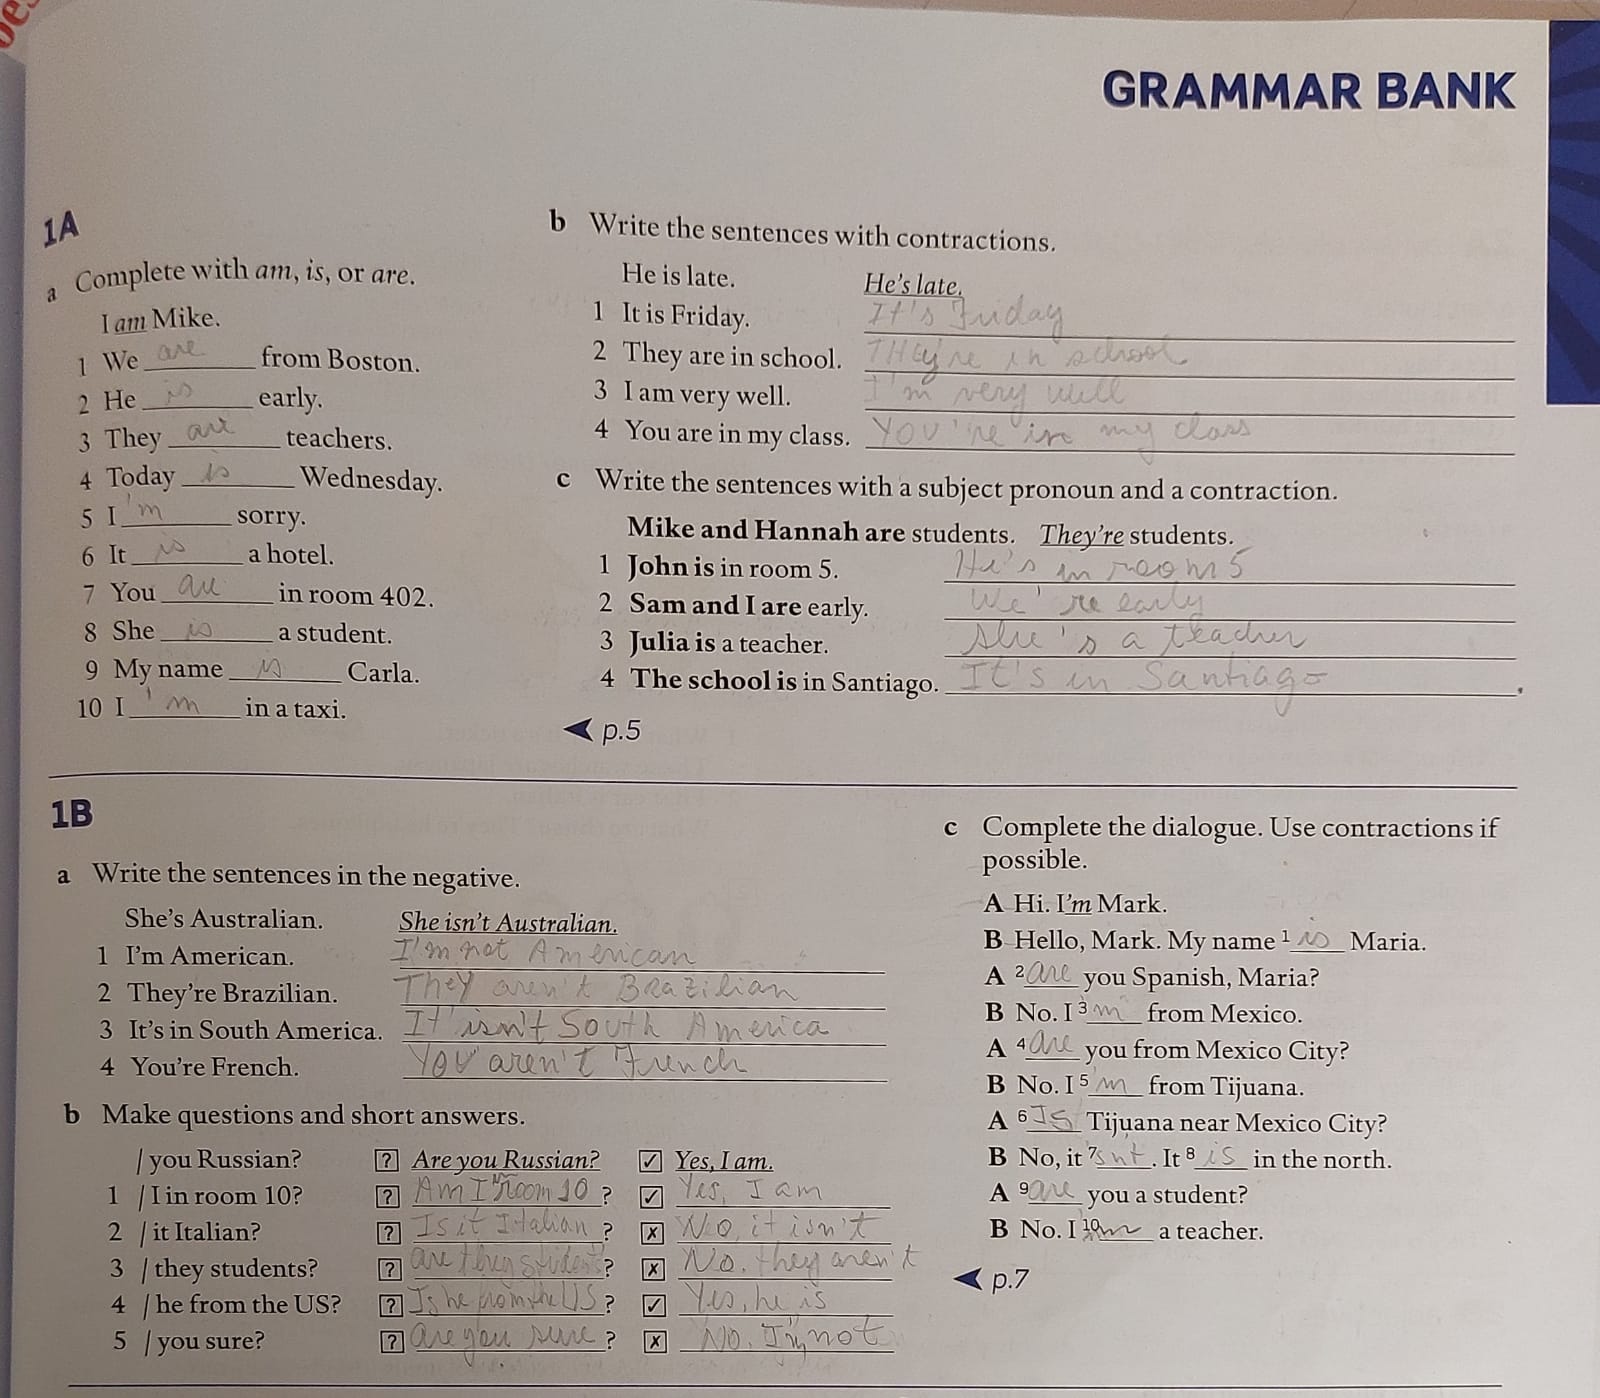 GRAMMAR BANK
1A
a Complete with am, is, or are.
I am Mike.
1 We are from Boston.
2 He is early.
3 They are teachers.
4 Today is Wednesday.
5 I 'm sorry.
6 It is a hotel.
7 You are in room 402.
8 She is a student.
9 My name is Carla.
10 I 'm in a taxi.
b Write the sentences with contractions.
He is late. He's late.
1 It is Friday. It's Friday
2 They are in school. THey're in school
3 I am very well. I'm very well
4 You are in my class. YOU're in my class
c Write the sentences with a subject pronoun and a contraction.
Mike and Hannah are students. They're students.
1 John is in room 5. He's in room 5
2 Sam and I are early. We're early
3 Julia is a teacher. She's a teacher
4 The school is in Santiago. It's in Santiago.
p.5
1B
a Write the sentences in the negative.
She's Australian. She isn't Australian.
1 I'm American. I'm not American
2 They're Brazilian. They aren't Brazilian
3 It's in South America. It isn't South America
4 You're French. You aren't French
b Make questions and short answers.
/ you Russian? ? Are you Russian? ✓ Yes, I am.
1 / I in room 10? ? Am I in room 10 ? ✓ Yes, I am
2 / it Italian? ? Is it Italian ? ✗ No, it isn't
3 / they students? ? are they students ? ✗ No. they aren't
4 / he from the US? ? Is he from the US ? ✓ Yes, he is
5 / you sure? ? are you sure ? ✗ No. I'm not
c Complete the dialogue. Use contractions if
possible.
A Hi. I'm Mark.
B Hello, Mark. My name 1 is Maria.
A 2 are you Spanish, Maria?
B No. I 3 'm from Mexico.
A 4 are you from Mexico City?
B No. I 5 'm from Tijuana.
A 6 Is Tijuana near Mexico City?
B No, it 7 isn't. It 8 is in the north.
A 9 are you a student?
B No. I 10 'm a teacher.
p.7